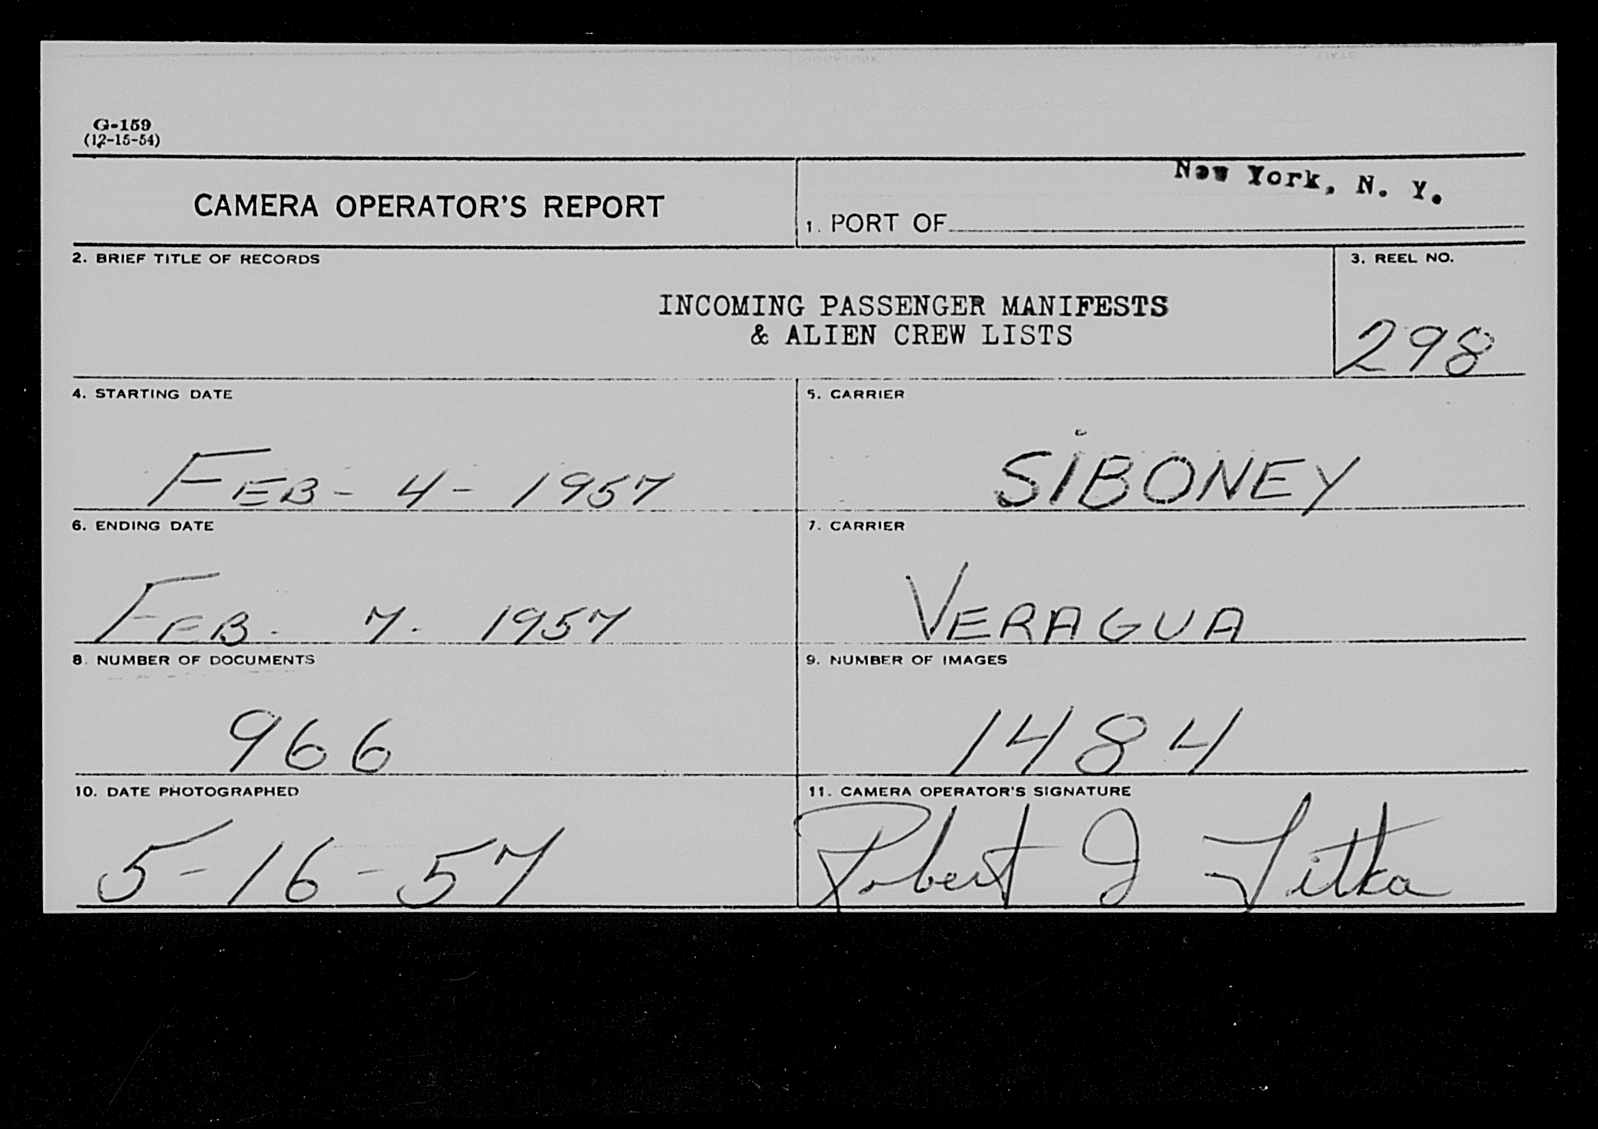 G-159
(12-15-54)
CAMERA OPERATOR'S REPORT
New York, N. Y.
1. PORT OF
2. BRIEF TITLE OF RECORDS
INCOMING PASSENGER MANIFESTS
& ALIEN CREW LISTS
3. REEL NO.
298
4. STARTING DATE
FEB - 4 - 1957
5. CARRIER
SIBONEY
6. ENDING DATE
FEB. 7. 1957
7. CARRIER
VERAGUA
8. NUMBER OF DOCUMENTS
966
9. NUMBER OF IMAGES
1484
10. DATE PHOTOGRAPHED
5-16-57
11. CAMERA OPERATOR'S SIGNATURE
Robert J